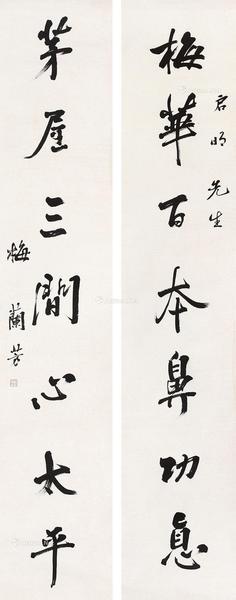 梅華百本鼻功息
君明先生
茅屋三間心太平
梅蘭芳